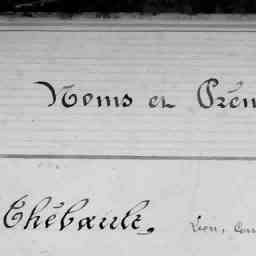 Noms et Prén
Thébault. Léon,